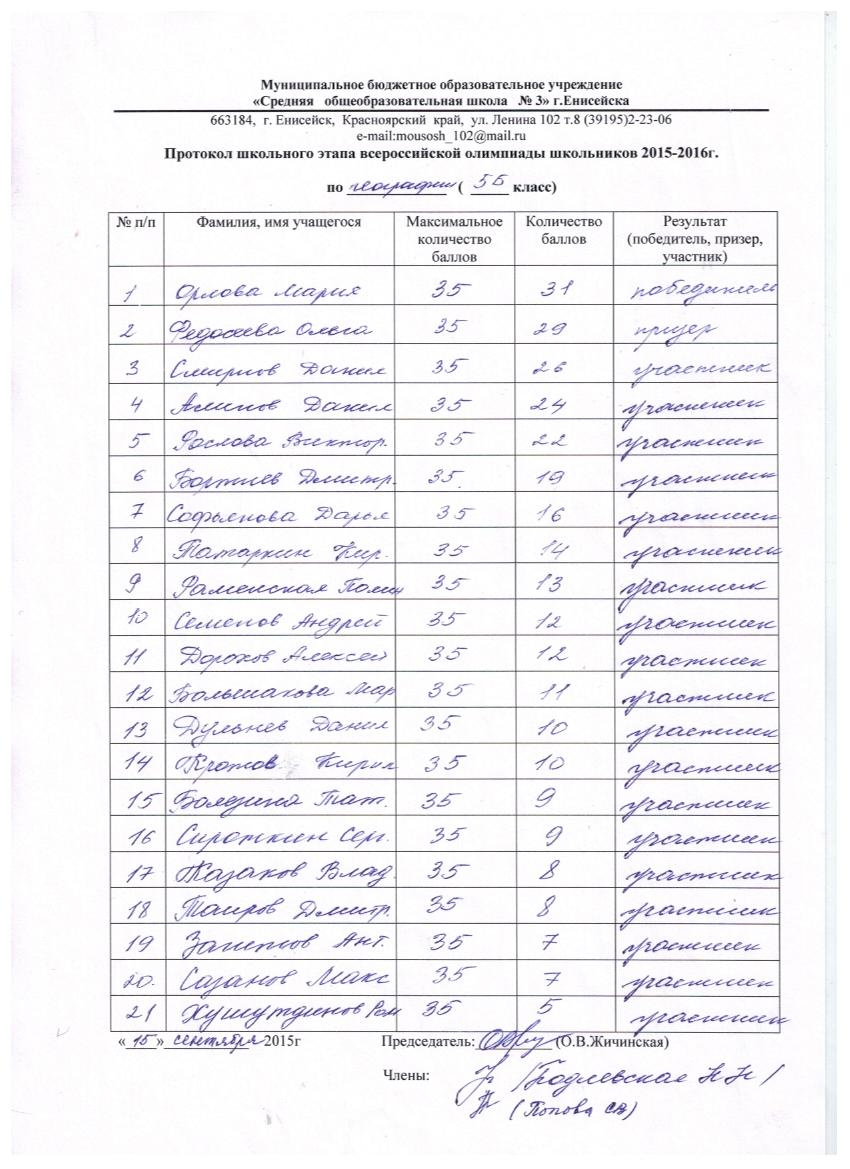 Муниципальное бюджетное образовательное учреждение
«Средняя общеобразовательная школа № 3» г.Енисейска
663184, г. Енисейск, Красноярский край, ул. Ленина 102 т.8 (39195)2-23-06
e-mail:mousosh_102@mail.ru
Протокол школьного этапа всероссийской олимпиады школьников 2015-2016г.
по географии ( 5Б класс)
№ п/п Фамилия, имя учащегося Максимальное количество баллов Количество баллов Результат (победитель, призер, участник)
1 Орлова Мария 35 31 победитель
2 Федосеева Ольга 35 29 призер
3 Смирнов Данил 35 26 участник
4 Данил 35 24 участник
5 Рослова Виктор. 35 22 участник
6 Дмитр. 35. 19 участник
7 Софьянова Дарья 35 16 участник
8 Татаркин Кир. 35 14 участник
9 Раменская Полин 35 13 участник
10 Семенов Андрей 35 12 участник
11 Дорохов Алексей 35 12 участник
12 Большакова Мар 35 11 участник
13 Дульнев Данил 35 10 участник
14 Кротов Кирил 35 10 участник
15 Тат. 35 9 участник
16 Сироткин Серг. 35 9 участник
17 Казаков Влад. 35 8 участник
18 Таиров Дмитр. 35 8 участник
19 Ант. 35 7 участник
20. Сазанов Макс 35 7 участник
21 Хушутдинов Ром 35 5 участник
« 15 » сентября 2015г Председатель: (О.В.Жичинская)
Члены: /Бодлевская Н Н/
(Попова СВ)